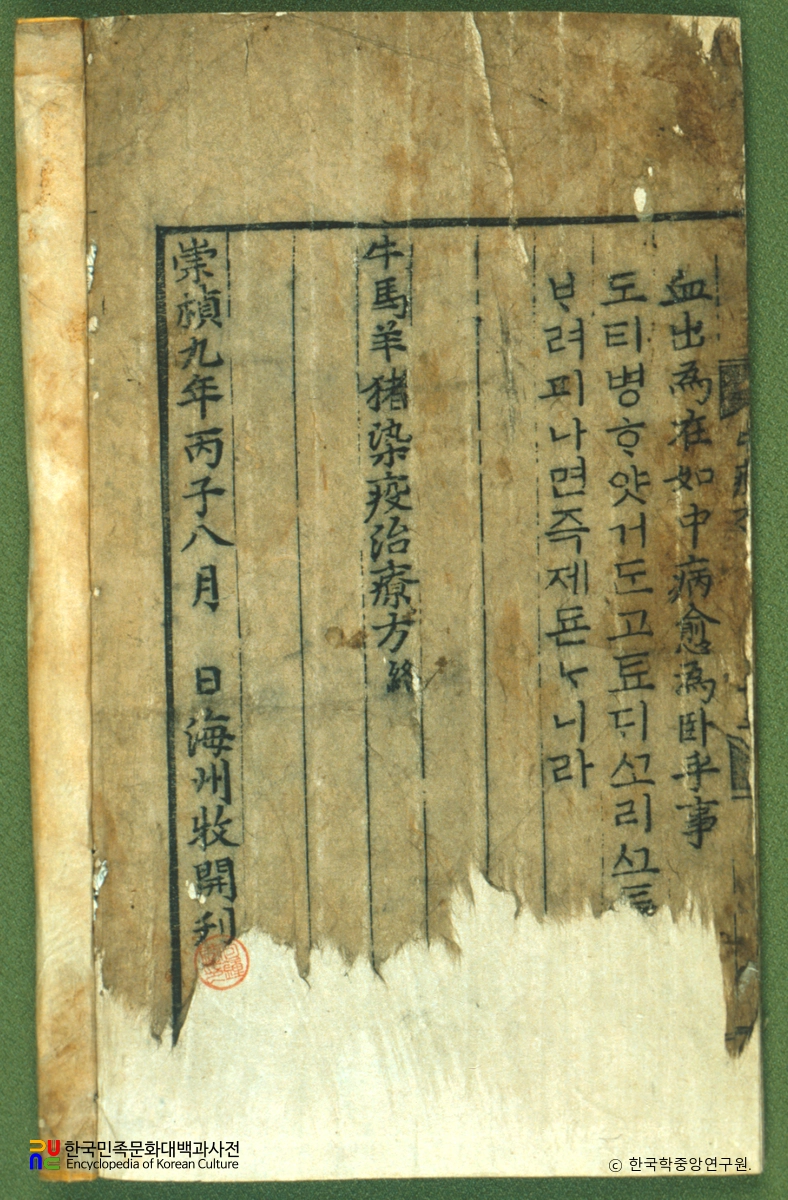 血出為在如中病愈為臥乎事
도티병ᄒᆞ얏거도고툐ᄃᆡ소리소
ᄇᆞ려피나면즉제됸ᄂᆞ니라
牛馬羊猪染疫治療方 終
崇禎九年丙子八月 日海州牧開刊
한국민족문화대백과사전
Encyclopedia of Korean Culture
ⓒ 한국학중앙연구원.